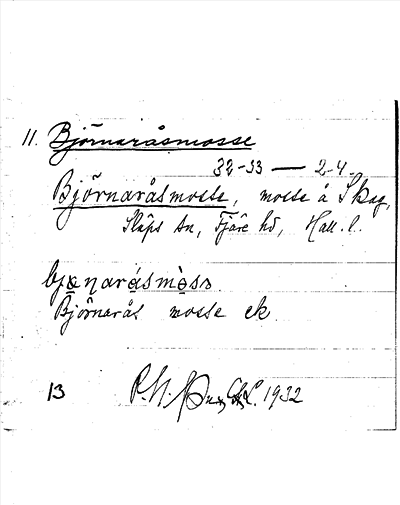 11. Björnaråsmosse
32-33 — 2-4.
Björnaråsmosse, mosse å Skog,
Släps sn, Fjäre hd, Hall. l.
Björnarås mosse ek
13 1932